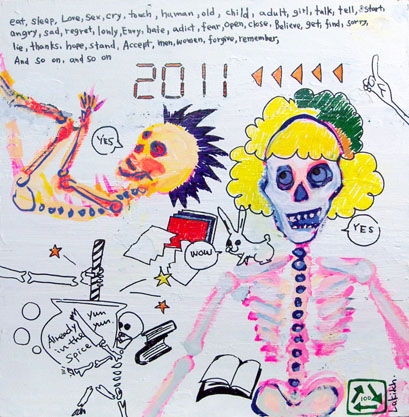 eat, sleep, Love, sex, cry, touch, human, old, child, adult, girl, talk, tell, start,
angry, sad, regret, lonly, Envy, hate, adict, fear, open, close, Believe, get, find, sorry,
lie, thanks, hope, stand, Accept, men, women, forgive, remember,
And so on, and so on
2011
YES
YES
WOW
Already
in the
Spice
yun
yun
100